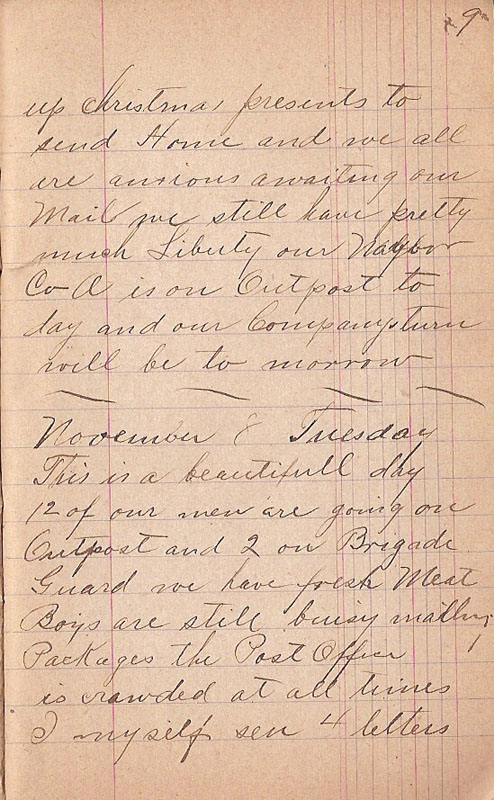 9
up Christmas presents to
send Home and we all
are anxious awaiting our
Mail we still have pretty
much Liberty our Naybor
Co A is on Outpost to
day and our Companys turn
will be to morrow
November 8 Tuesday
This is a beautifull day
12 of our men are going on
Outpost and 2 on Brigade
Guard we have fresh Meat
Boys are still buisy mailing
Packages the Post Office
is crawded at all times
I myself sen 4 letters